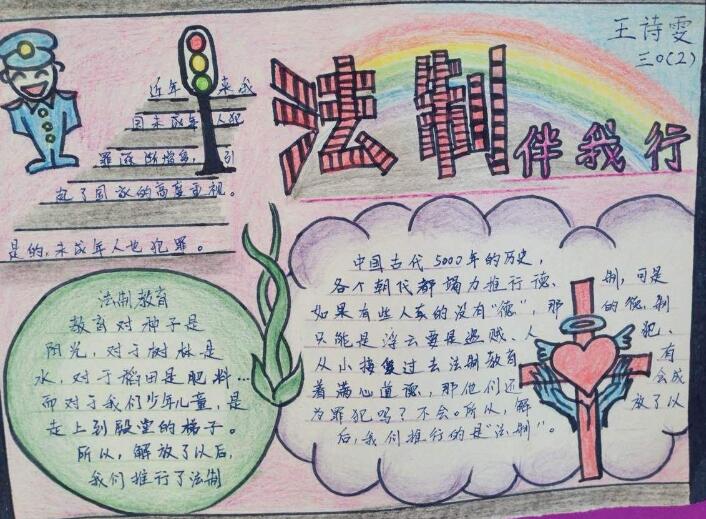 王诗雯
三〇(2)
法制伴我行
近年来我
国未成年人犯
罪逐渐增多,引
起了国家的高度重视。
是的,未成年人也犯罪。
法制教育
教育对种子是
阳光,对于树林是
水,对于稻田是肥料…
而对于我们少年儿童,是
走上到殿堂的梯子。
所以,解放了以后,
我们推行了法制
中国古代5000年的历史,
各个朝代都竭力推行德、制,可是
如果有些人系的没有“德”,那的德,制
只能是浮云要是盗贼、人犯、
从小接受过去法制教育有
着满心道德,那他们还会成
为罪犯吗?不会。所以,解放了以
后,我们推行的是“法制”。